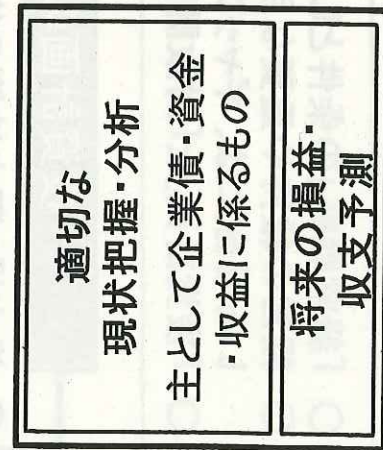 適切な
現状把握・分析
主として企業債・資金
・収益に係るもの
将来の損益・
収支予測